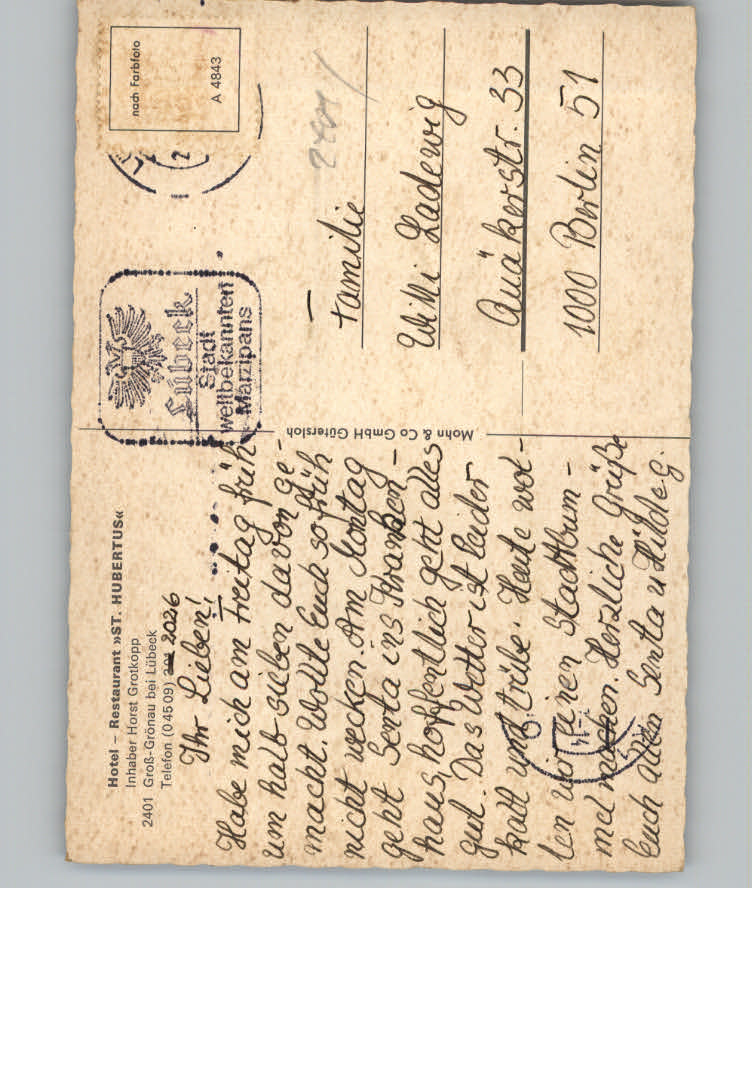 Hotel – Restaurant »ST. HUBERTUS«
Inhaber Horst Grotkopp
2401 Groß-Grönau bei Lübeck
Telefon (0 45 09) 2026
Ihr Lieben!
Habe mich am Freitag früh
um halb sieben davon ge-
macht. Wollte Euch so früh
nicht wecken. Am Montag
geht Senta ins Kranken-
haus, hoffentlich geht alles
gut. Das Wetter ist leider
kalt und trübe. Heute wol-
len wir einen Stadtbum-
mel machen. Herzliche Grüße
Euch allen Senta u Hildeg.
Mohn & Co GmbH Gütersloh
Lübeck
Stadt
weltbekannten
Marzipans
nach Farbfoto
A 4843
Familie
Willi Ladewig
Quäkerstr. 33
1000 Berlin 51